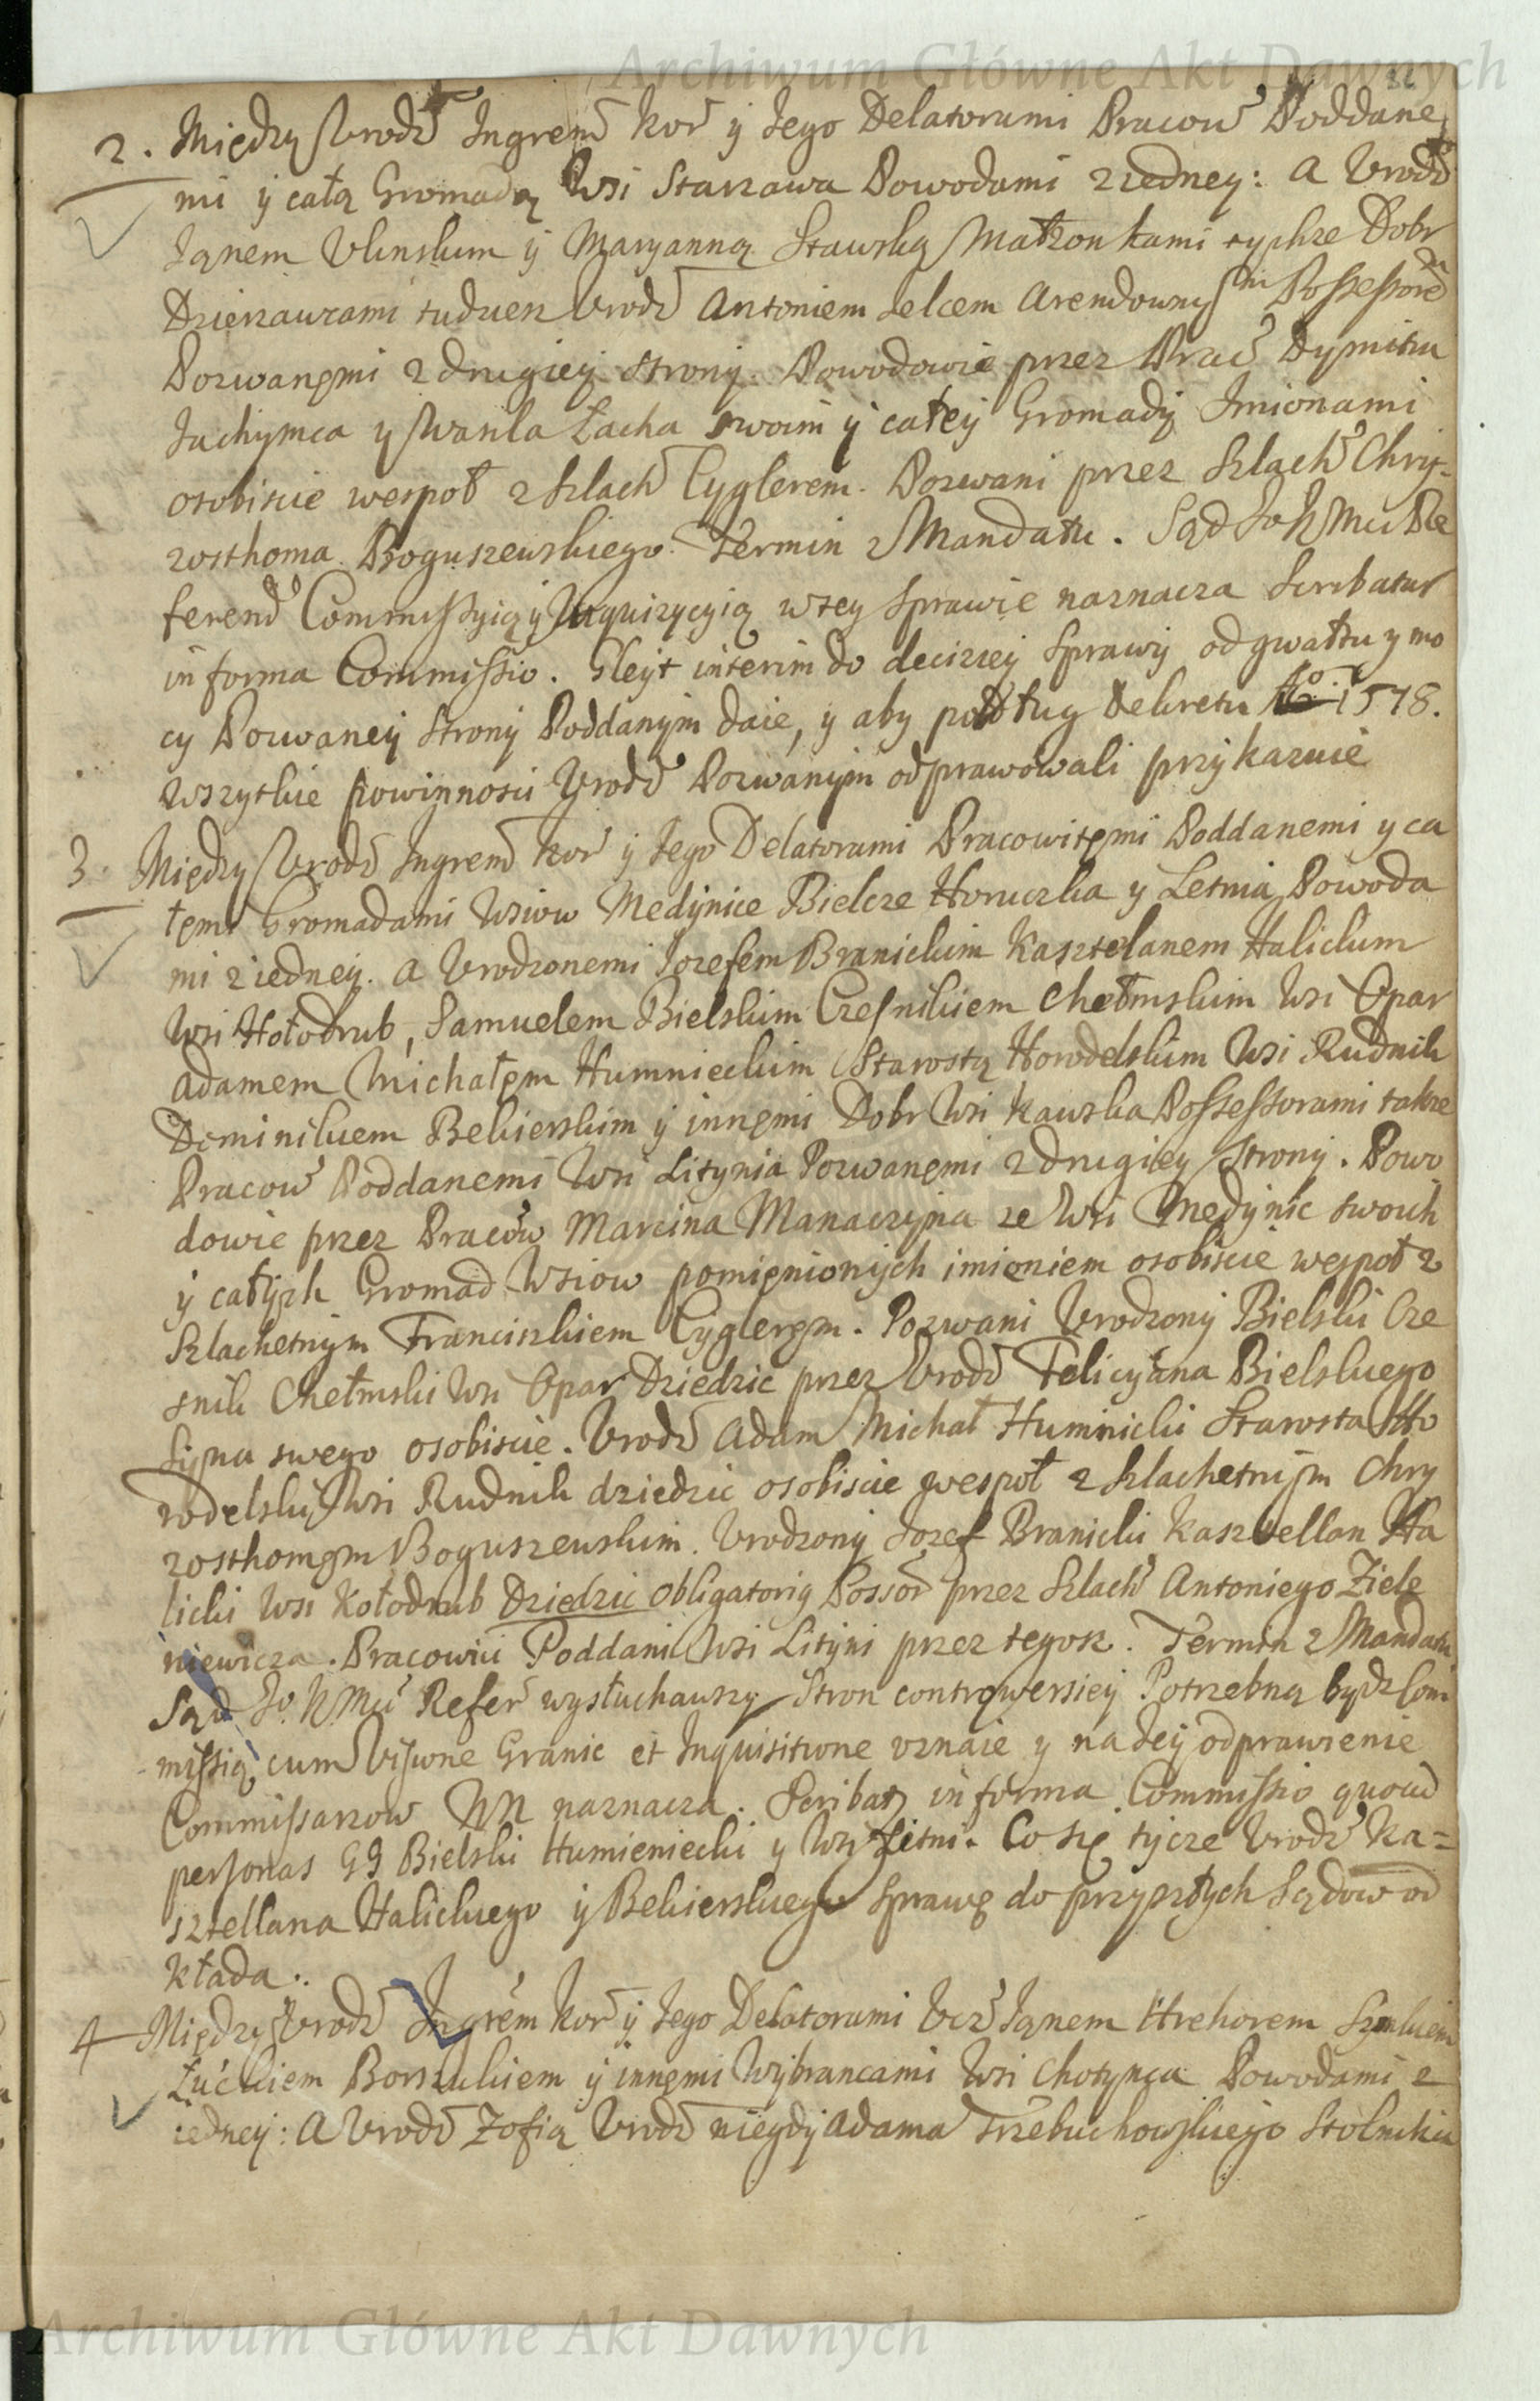 Archiwum Główne Akt Dawnych
2. Między Vrodź Ingrem̃ Kor̃ y Jego Delatorami Pracow̃ Poddane
mi y całą Gromadą Wsi Starzawa Powodami z iedney: a Vrodź
Janem Vlinskim y Maryanną Stawską Małzonkami tychze Dobr
Dzierzawcami tudziez Vrodź Antoniem Jelcem Arendownym Possessore
Pozwanemi z drugiey strony. Powodowie przez Prac̃ Dymitra
Jachymca y Iwanka Łacha swoim y całey Gromady Jmionami
osobiscie wespoł z Szlach̃ Cyglerem. Pozwani przez Szlach̃ Chry-
zosthoma Boguszewskiego. Termin z Mandatu. Sąd Jo K Mci Re
ferend̃ Commissyią y Inquizycyią w tey Sprawie naznacza Scribatur
in forma Commissio. Gleyt interim do deciziey Sprawy od gwałtu y mo
cy Pozwaney Strony Poddanym daie, y aby podług Dekretu Aō 1578.
Wszytkie powinnosci Vrodź Pozwanym odprawowali przykazuie
3. Między Vrodź Ingrem̃ Kor̃ y Jego Delatorami Pracowitemi Poddanemi y ca
łemi Gromadami Wsiow Medynice Bielcze Horuczka y Letnia Powoda
mi z iedney. a Vrodzonemi Jozefem Branickim Kasztelanem Halickim
Wsi Hołodrub, Samuelem Bielskim Czesnikiem Chełmskim Wsi Opar
Adamem Michałem Humnieckim Starostą Horodelskim Wsi Rudnik
Dominikiem Bekierskim y innemi Dobr Wsi Kawska Possessorami takze
Pracow̃ Poddanemi Wsi Litynia Pozwanemi z drugiey strony. Powo
dowie przez Pracow̃ Marcina Manaczyna ze Wsi Medynic swoich
y całych Gromad Wsiow pomienionych imieniem osobiscie wespoł z
Szlachetnym Franciszkiem Cyglerem. Pozwani Vrodzony Bielski Cze
snik Chełmski Wsi Opar Dziedzic przez Vrodź Felicyana Bielskiego
Syna swego osobiscie. Vrodź Adam Michał Humnicki Starosta Ho
rodelski Wsi Rudnik dziedzic osobiscie wespoł z Szlachetnym Chry
zosthomem Boguszewskim. Vrodzony Jozef Branicki Kasztellan Ha
licki Wsi Kołodrub Dziedzic obligatorią Possor̃ przez Szlach̃ Antoniego Ziele
niewicza. Pracowici Poddani Wsi Lityni przez tegoz. Termin z Mandatu
Sąd Jo K Mci Refer̃ wysłuchawszy Stron controwersiey Potrzebną bydz Com
missią cum visione Granic et Inquisitione vznaie y na Jey odprawienie
Commissarzow NN naznacza. Scribatz in forma Commissio quoad
personas GG Bielski Humieniecki y Wsi Letni. Co się tycze Vrodź Ka=
sztellana Halickiego y Bekierskiego Sprawę do przyszłych Sądow od
kłada.
4 Między Vrodź Ingrem̃ Kor̃ y Jego Delatorami Vcz̃ Janem Hrehorem
Borszukiem y innemi Wybrancami Wsi Chotynca Powodami z
iedney: A Vrodź Zofią Vrodź niegdy Adama Trzebuchowskiego Stolnika
Archiwum Główne Akt Dawnych